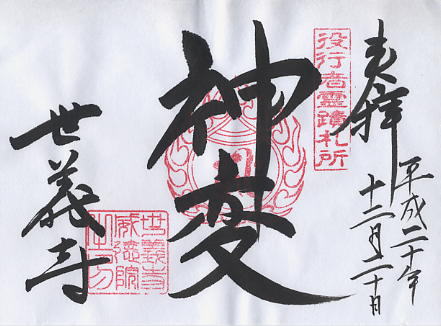 奉拝
平成二十年
十二月二十日
役行者霊蹟札所
神変
世義寺
世義寺
威徳院
之印